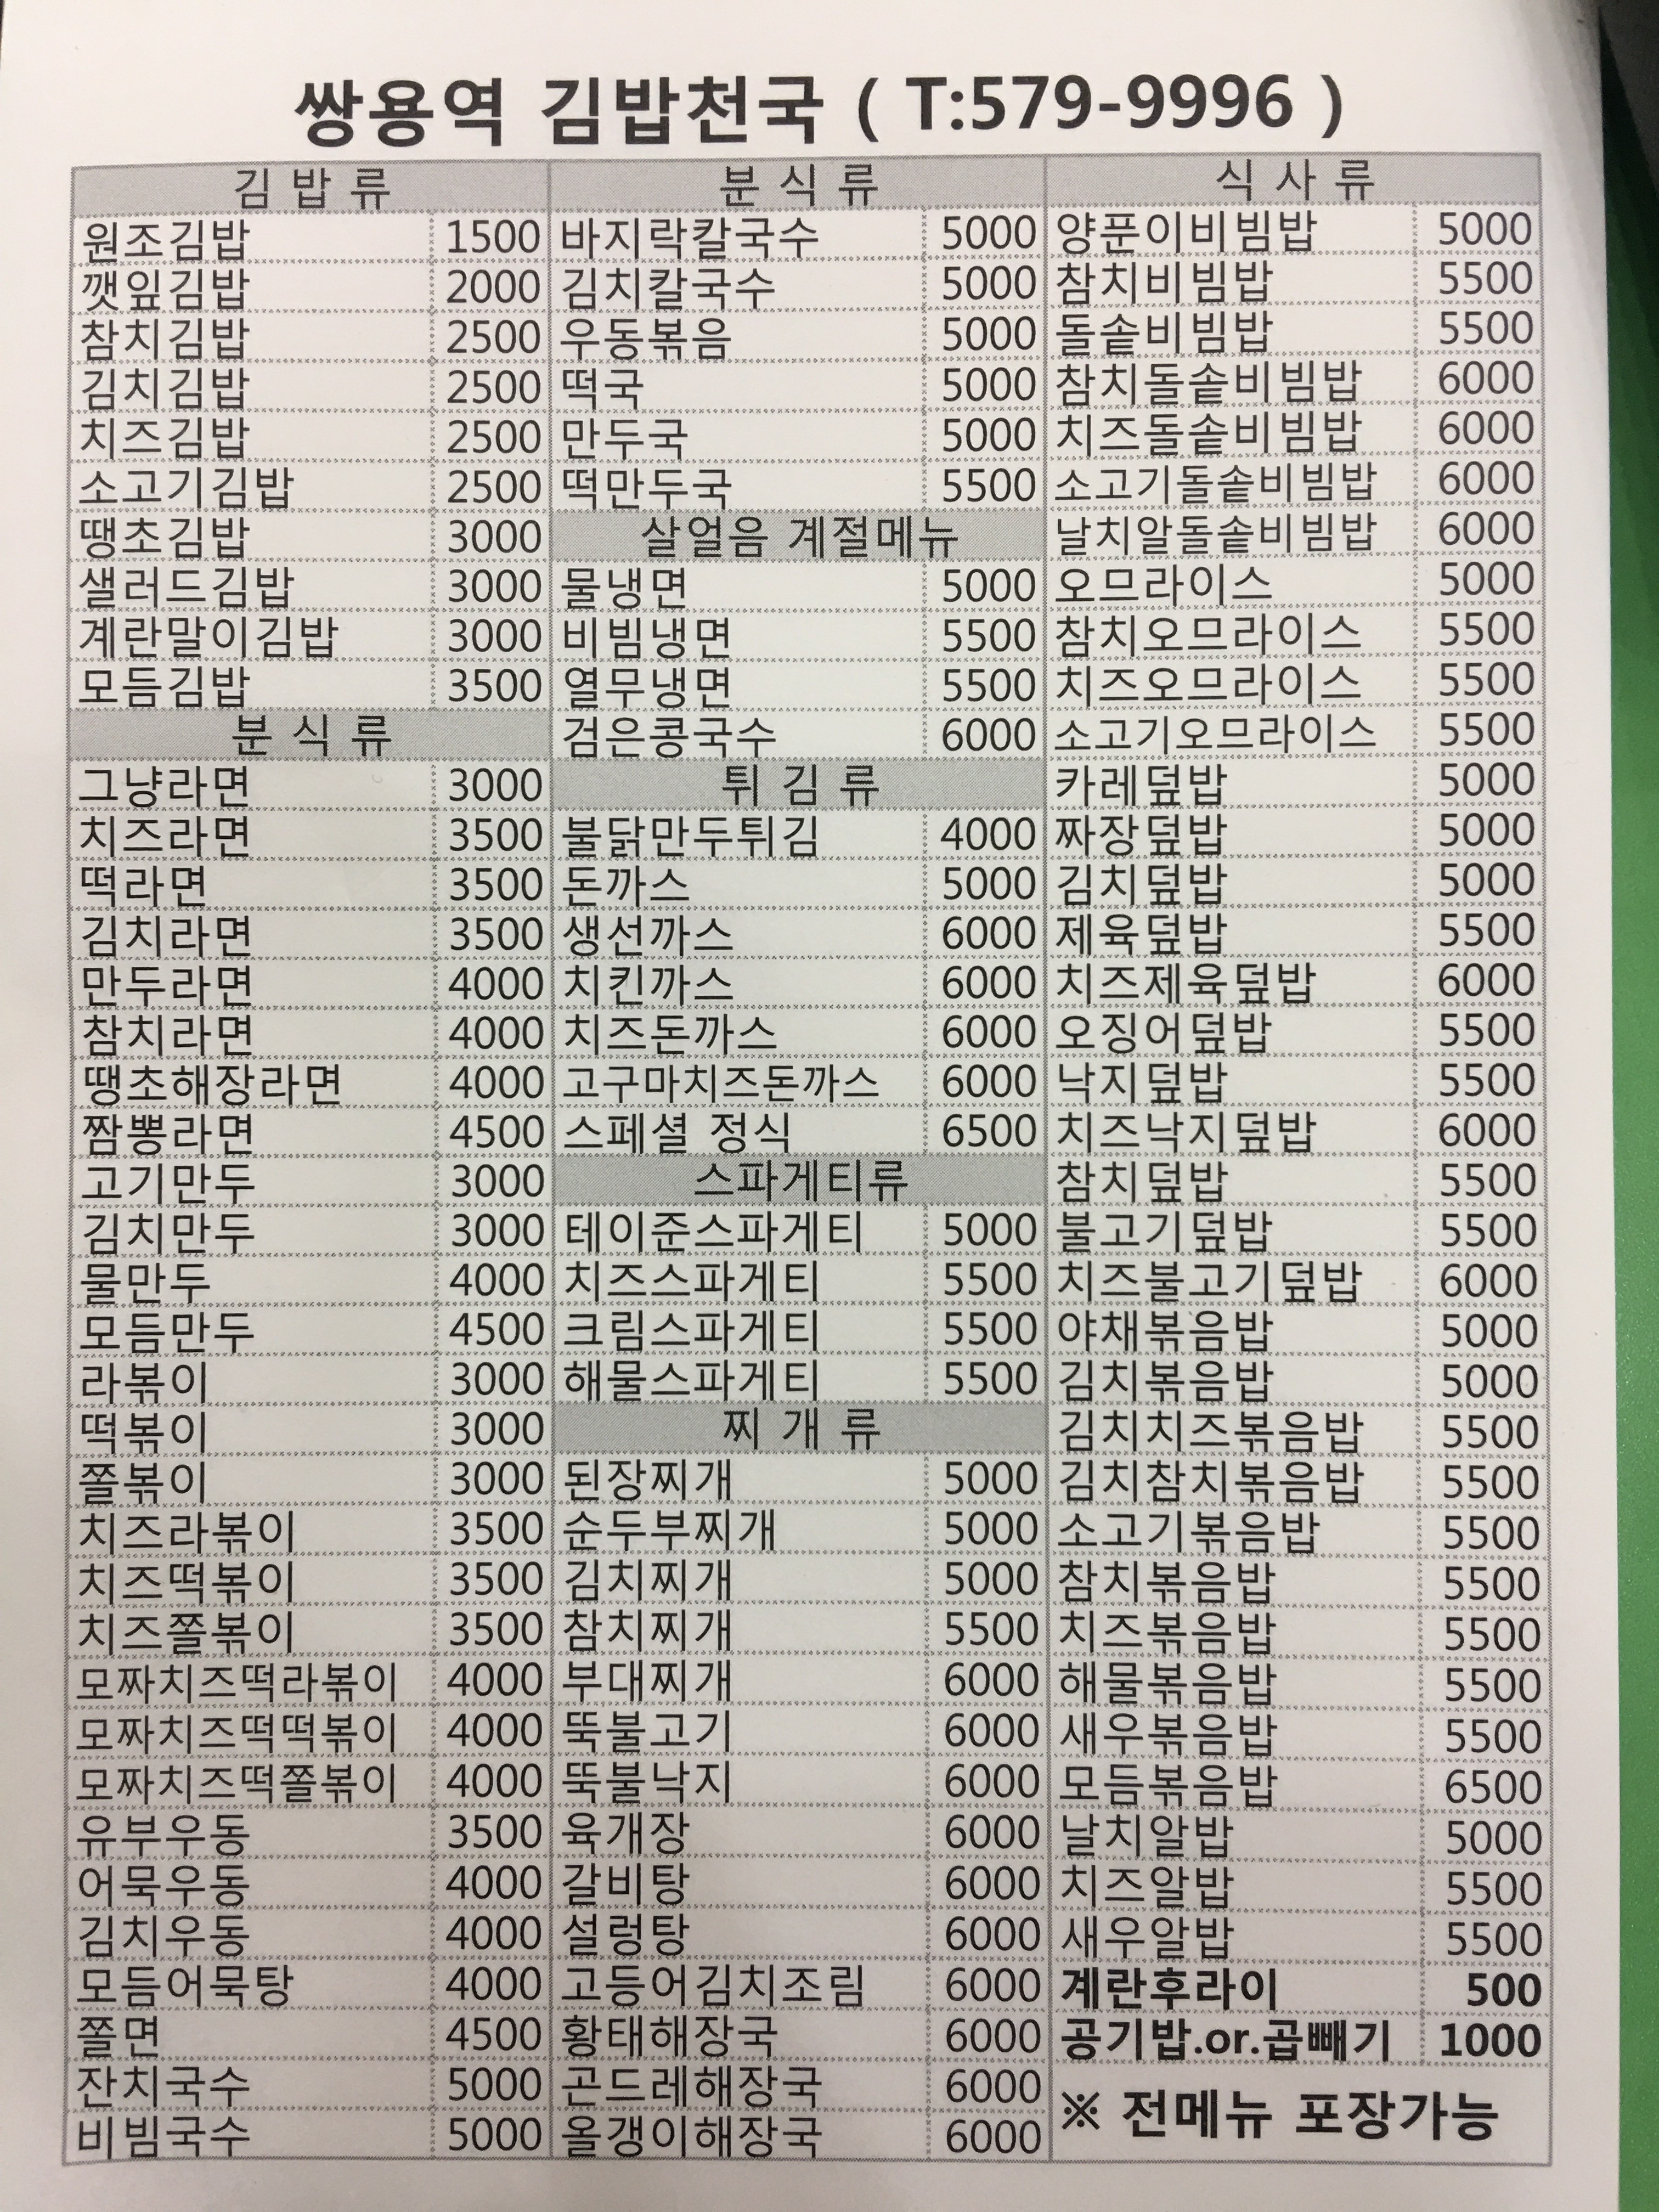 쌍용역 김밥천국 ( T:579-9996 )
김 밥 류
원조김밥 1500
깻잎김밥 2000
참치김밥 2500
김치김밥 2500
치즈김밥 2500
소고기김밥 2500
땡초김밥 3000
샐러드김밥 3000
계란말이김밥 3000
모듬김밥 3500
분 식 류
그냥라면 3000
치즈라면 3500
떡라면 3500
김치라면 3500
만두라면 4000
참치라면 4000
땡초해장라면 4000
짬뽕라면 4500
고기만두 3000
김치만두 3000
물만두 4000
모듬만두 4500
라볶이 3000
떡볶이 3000
쫄볶이 3000
치즈라볶이 3500
치즈떡볶이 3500
치즈쫄볶이 3500
모짜치즈떡라볶이 4000
모짜치즈떡떡볶이 4000
모짜치즈떡쫄볶이 4000
유부우동 3500
어묵우동 4000
김치우동 4000
모듬어묵탕 4000
쫄면 4500
잔치국수 5000
비빔국수 5000
분 식 류
바지락칼국수 5000
김치칼국수 5000
우동볶음 5000
떡국 5000
만두국 5000
떡만두국 5500
살얼음 계절메뉴
물냉면 5000
비빔냉면 5500
열무냉면 5500
검은콩국수 6000
튀 김 류
불닭만두튀김 4000
돈까스 5000
생선까스 6000
치킨까스 6000
치즈돈까스 6000
고구마치즈돈까스 6000
스페셜 정식 6500
스파게티류
테이준스파게티 5000
치즈스파게티 5500
크림스파게티 5500
해물스파게티 5500
찌 개 류
된장찌개 5000
순두부찌개 5000
김치찌개 5000
참치찌개 5500
부대찌개 6000
뚝불고기 6000
뚝불낙지 6000
육개장 6000
갈비탕 6000
설렁탕 6000
고등어김치조림 6000
황태해장국 6000
곤드레해장국 6000
올갱이해장국 6000
식 사 류
양푼이비빔밥 5000
참치비빔밥 5500
돌솥비빔밥 5500
참치돌솥비빔밥 6000
치즈돌솥비빔밥 6000
소고기돌솥비빔밥 6000
날치알돌솥비빔밥 6000
오므라이스 5000
참치오므라이스 5500
치즈오므라이스 5500
소고기오므라이스 5500
카레덮밥 5000
짜장덮밥 5000
김치덮밥 5000
제육덮밥 5500
치즈제육덮밥 6000
오징어덮밥 5500
낙지덮밥 5500
치즈낙지덮밥 6000
참치덮밥 5500
불고기덮밥 5500
치즈불고기덮밥 6000
야채볶음밥 5000
김치볶음밥 5000
김치치즈볶음밥 5500
김치참치볶음밥 5500
소고기볶음밥 5500
참치볶음밥 5500
치즈볶음밥 5500
해물볶음밥 5500
새우볶음밥 5500
모듬볶음밥 6500
날치알밥 5000
치즈알밥 5500
새우알밥 5500
계란후라이 500
공기밥.or.곱빼기 1000
※ 전메뉴 포장가능